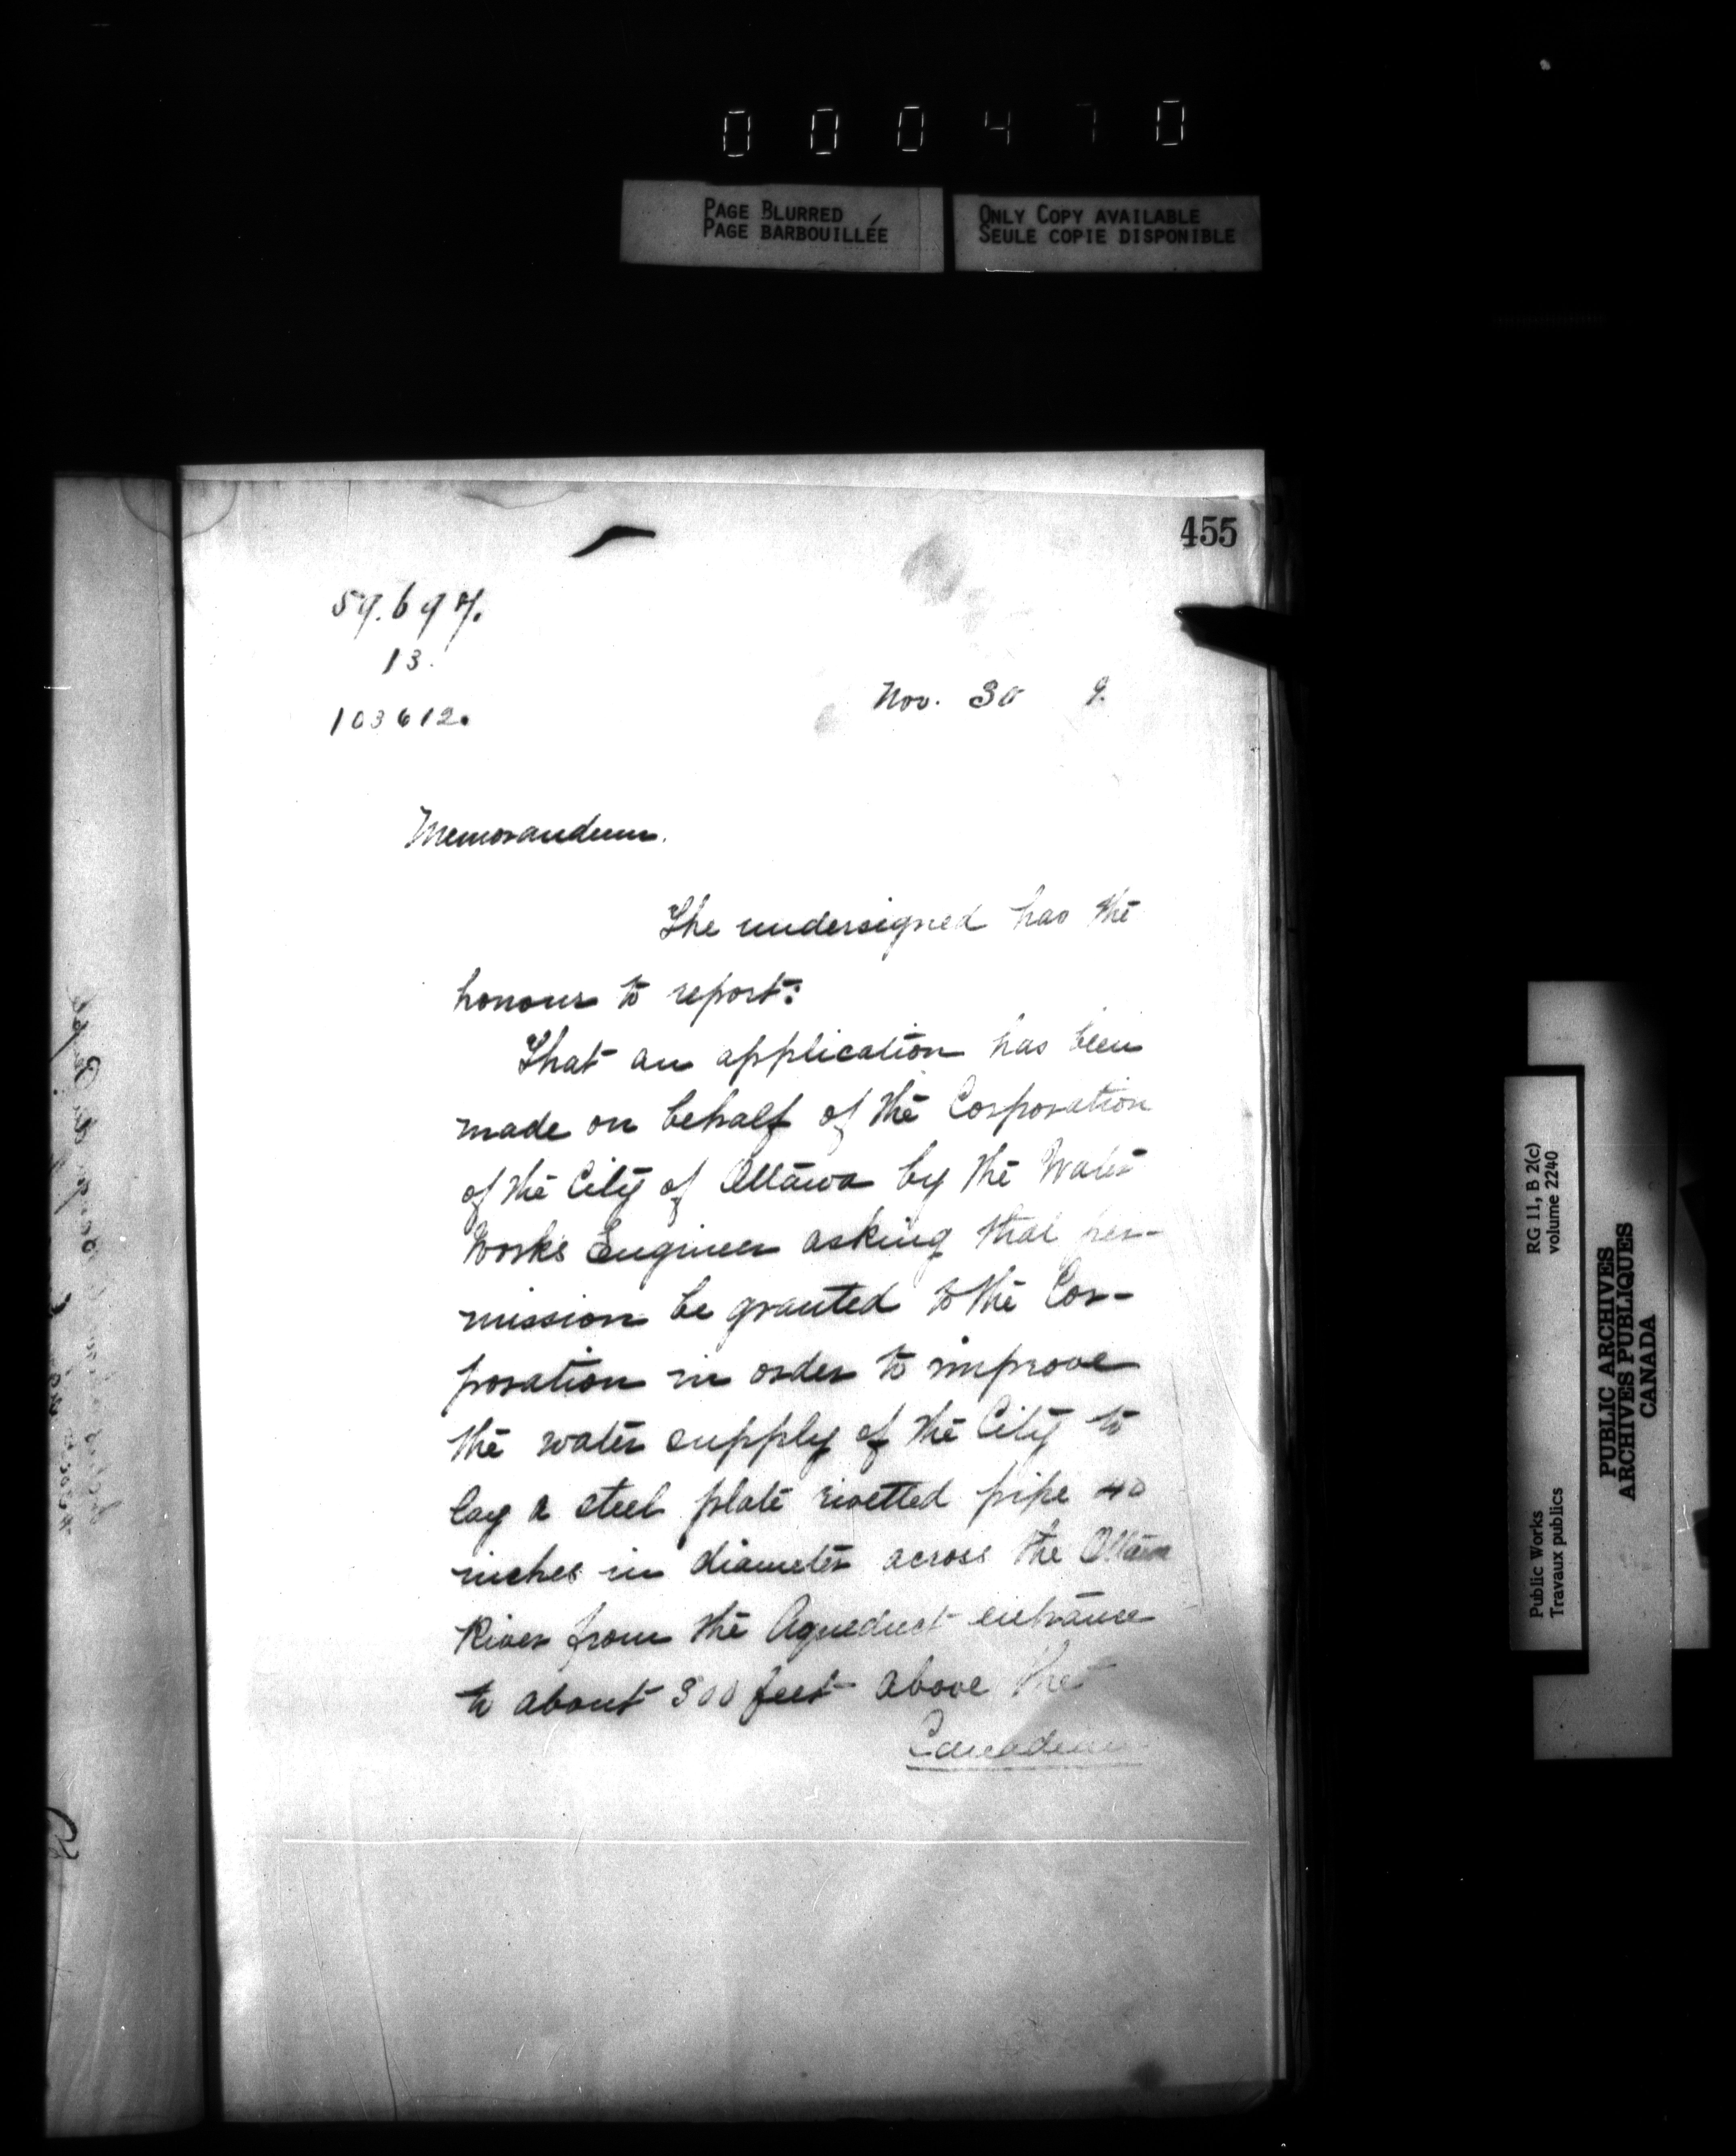 000470
PAGE BLURRED
PAGE BARBOUILLÉE
ONLY COPY AVAILABLE
SEULE COPIE DISPONIBLE
455
59.697.
13.
103612.
Nov. 30 9.
Memorandum.
The undersigned has the
honour to report:
That an application has been
made on behalf of the Corporation
of the City of Ottawa by the Water
Works Engineer asking that per-
mission be granted to the Cor-
poration in order to improve
the water supply of the City to
lay a steel plate rivetted pipe 40
inches in diameter across the Ottawa
River from the Aqueduct entrance
to about 300 feet above the
Canadian
RG 11, B 2(c)
volume 2240
Public Works
Travaux publics
PUBLIC ARCHIVES
ARCHIVES PUBLIQUES
CANADA